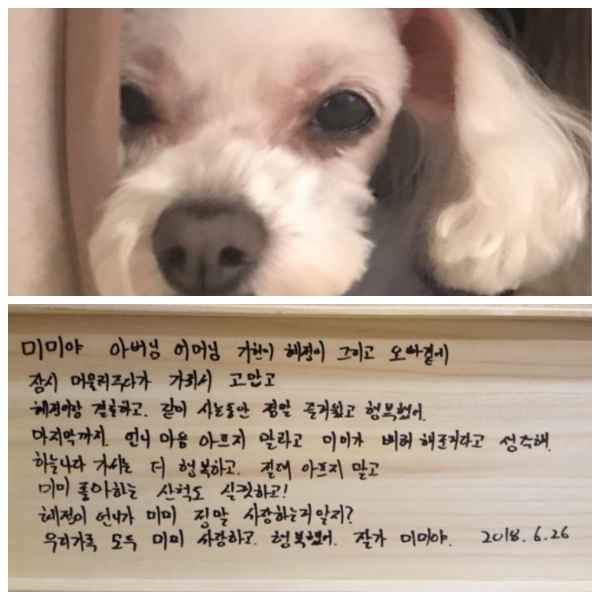 미미야 아버님 어머님 가현이 혜정이 그리고 오빠곁에
잠시 머물러주다가 가줘서 고맙고
혜정이랑 결혼하고. 같이 사는동안 정말 즐거웠고 행복했어.
마지막까지. 언니 마음 아프지 말라고 미미가 배려 해준거라고 생각해.
하늘나라 가서는 더 행복하고. 절대 아프지 말고
미미 좋아하는 산책도 실컷하고!
혜정이 언니가 미미 정말 사랑하는거알지?
우리가족 모두 미미 사랑하고. 행복했어. 잘가 미미야. 2018.6.26